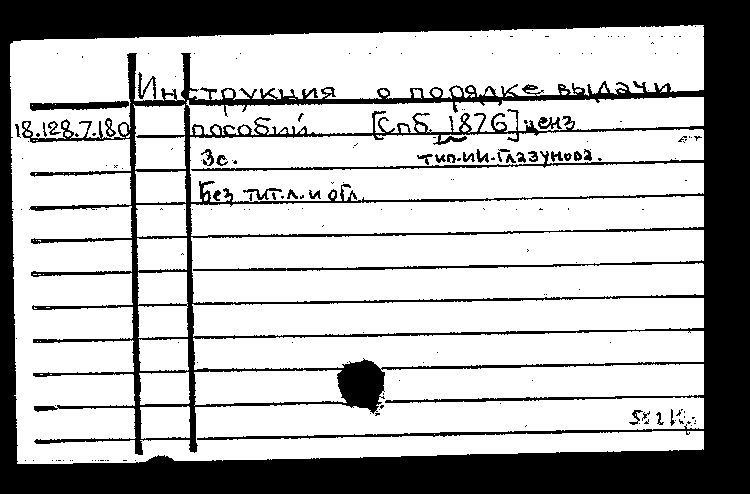 Инструкция о порядке выдачи
18.128.7.180 пособий. [Спб. 1876] ценз
3с. тип. И.И. Глазунова.
Без тит. л. и огл.